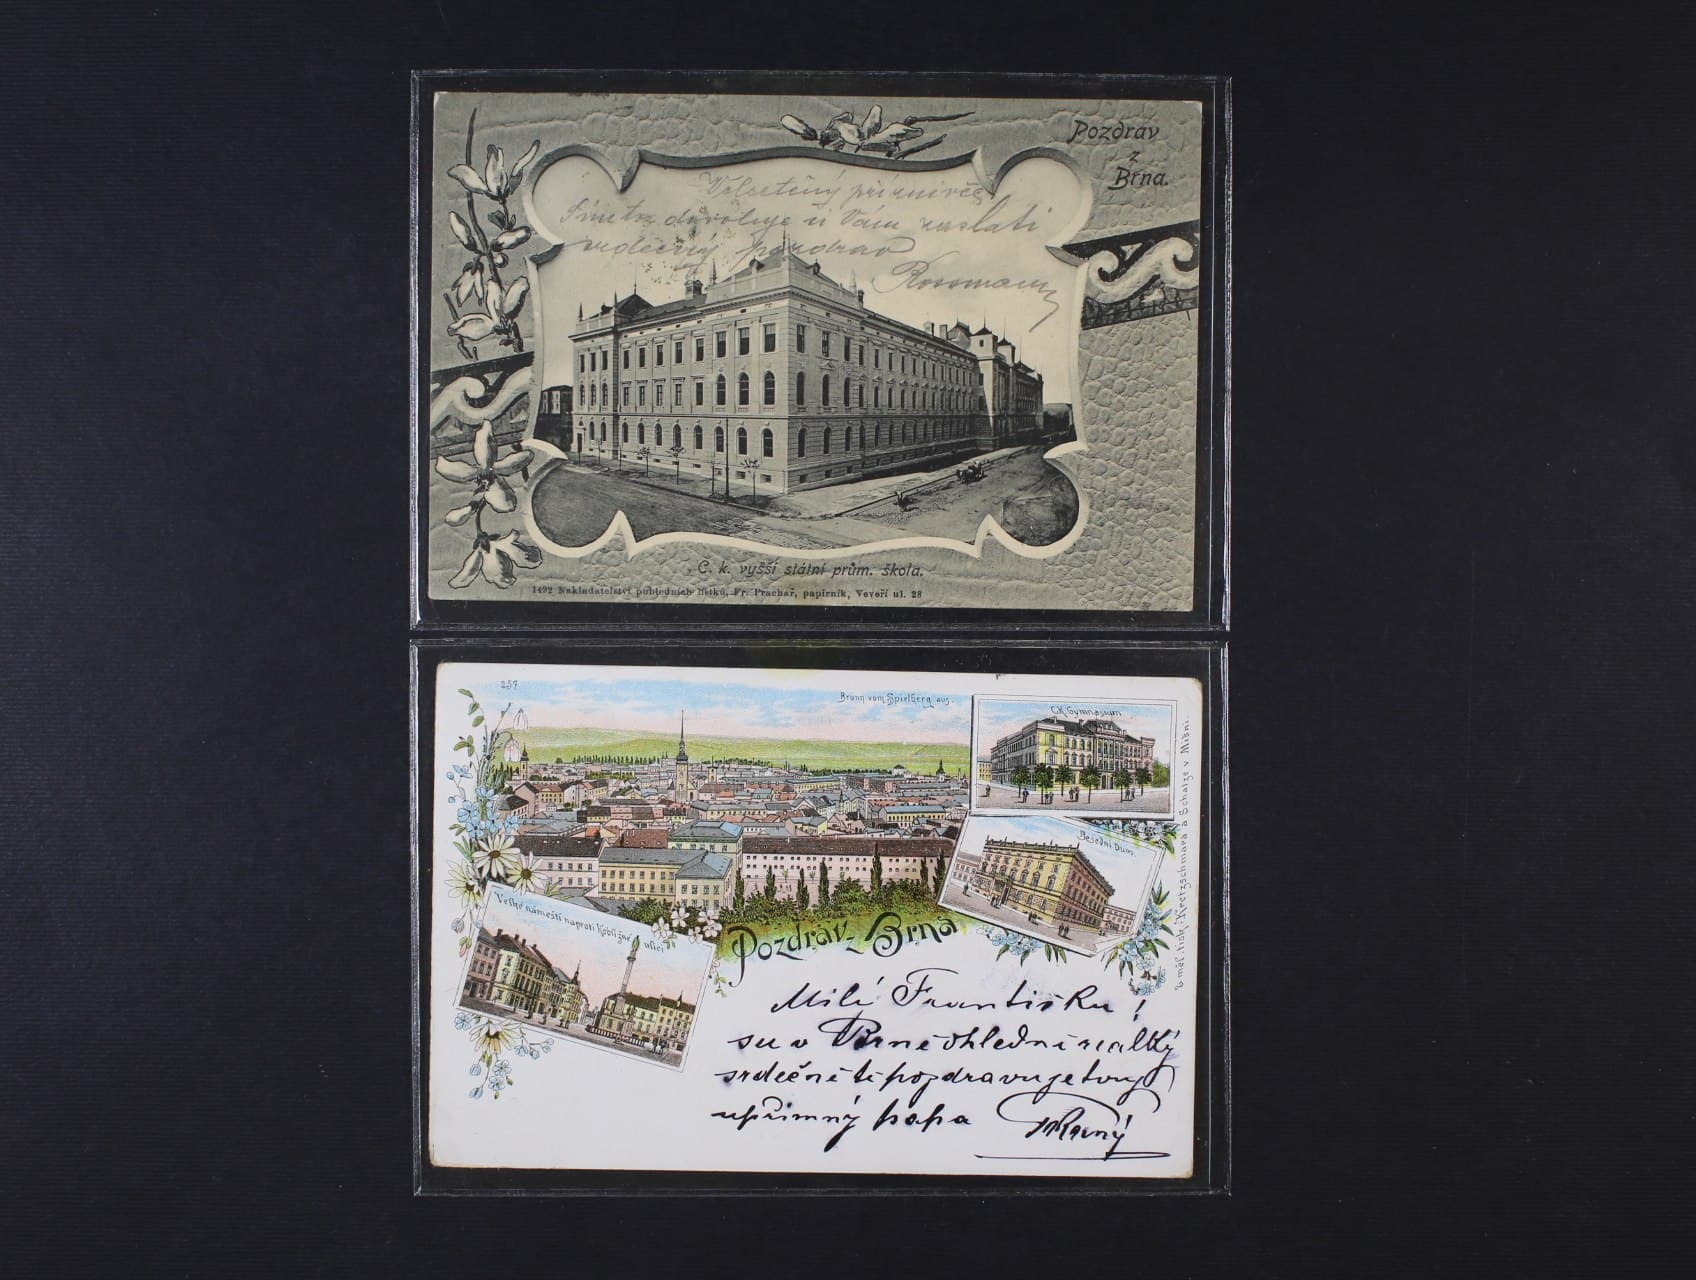 Pozdrav
z
Brna.
Velectěný příznivče
si Vám zaslati
srdečný pozdrav
Rossmann
C. k. vyšší státní prům. škola.
1492 Nakladatelství pohledních lístků, Fr. Prachař, papírník, Veveří ul. 28
257
Brunn vom Spielberg aus.
C.K. Gymnasium
Besední Dům.
Velké náměstí naproti Kobližné ulici
Pozdrav z Brna
Uměl. tisk. Kretzschmara a Schatze v Míšni.
Milí Františku!
su v Brně ohlední
srdečně tě pozdravuje tvůj
upřímný papa